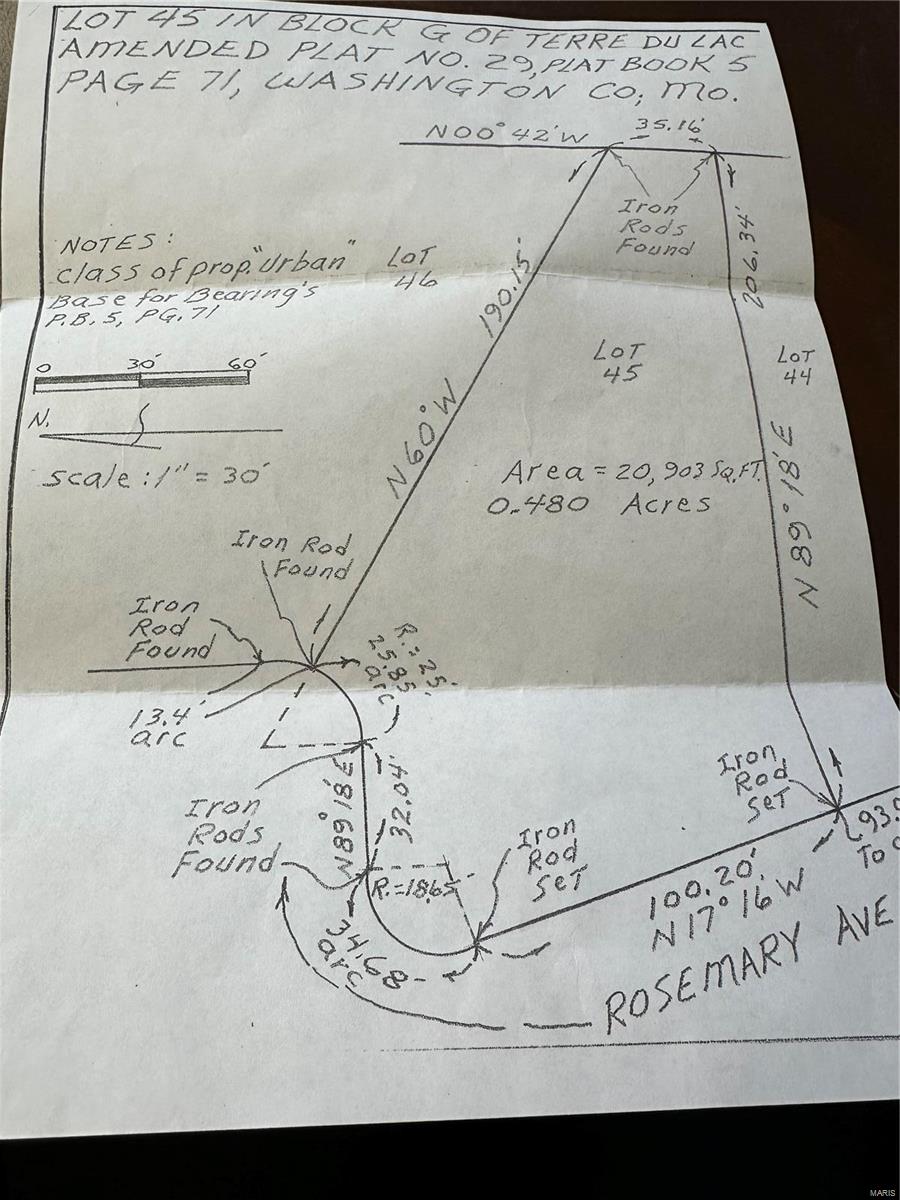 LOT 45 IN BLOCK G OF TERRE DU LAC
AMENDED PLAT NO. 29, PLAT BOOK 5
PAGE 71, WASHINGTON CO; MO.
N00° 42'W
35.16'
Iron
Rods
Found
206.34'
NOTES:
class of prop. "Urban"
Base for Bearing's
P.B. 5, PG. 71
LOT
46
190.15'
LOT
45
LOT
44
0 30' 60'
N.
Scale: 1" = 30'
N 60° W
Area = 20,903 SQ.FT.
0.480 Acres
N 89° 18' E
Iron Rod
Found
Iron
Rod
Found
R. = 25'
25.85'
arc
13.4'
arc
Iron
Rods
Found
N89° 18' E
32.04'
Iron
Rod
SET
Iron
Rod
SET
R. = 18.65'
34.68'
arc
100.20'
N 17° 16' W
93.9
To
ROSEMARY AVE
MARIS